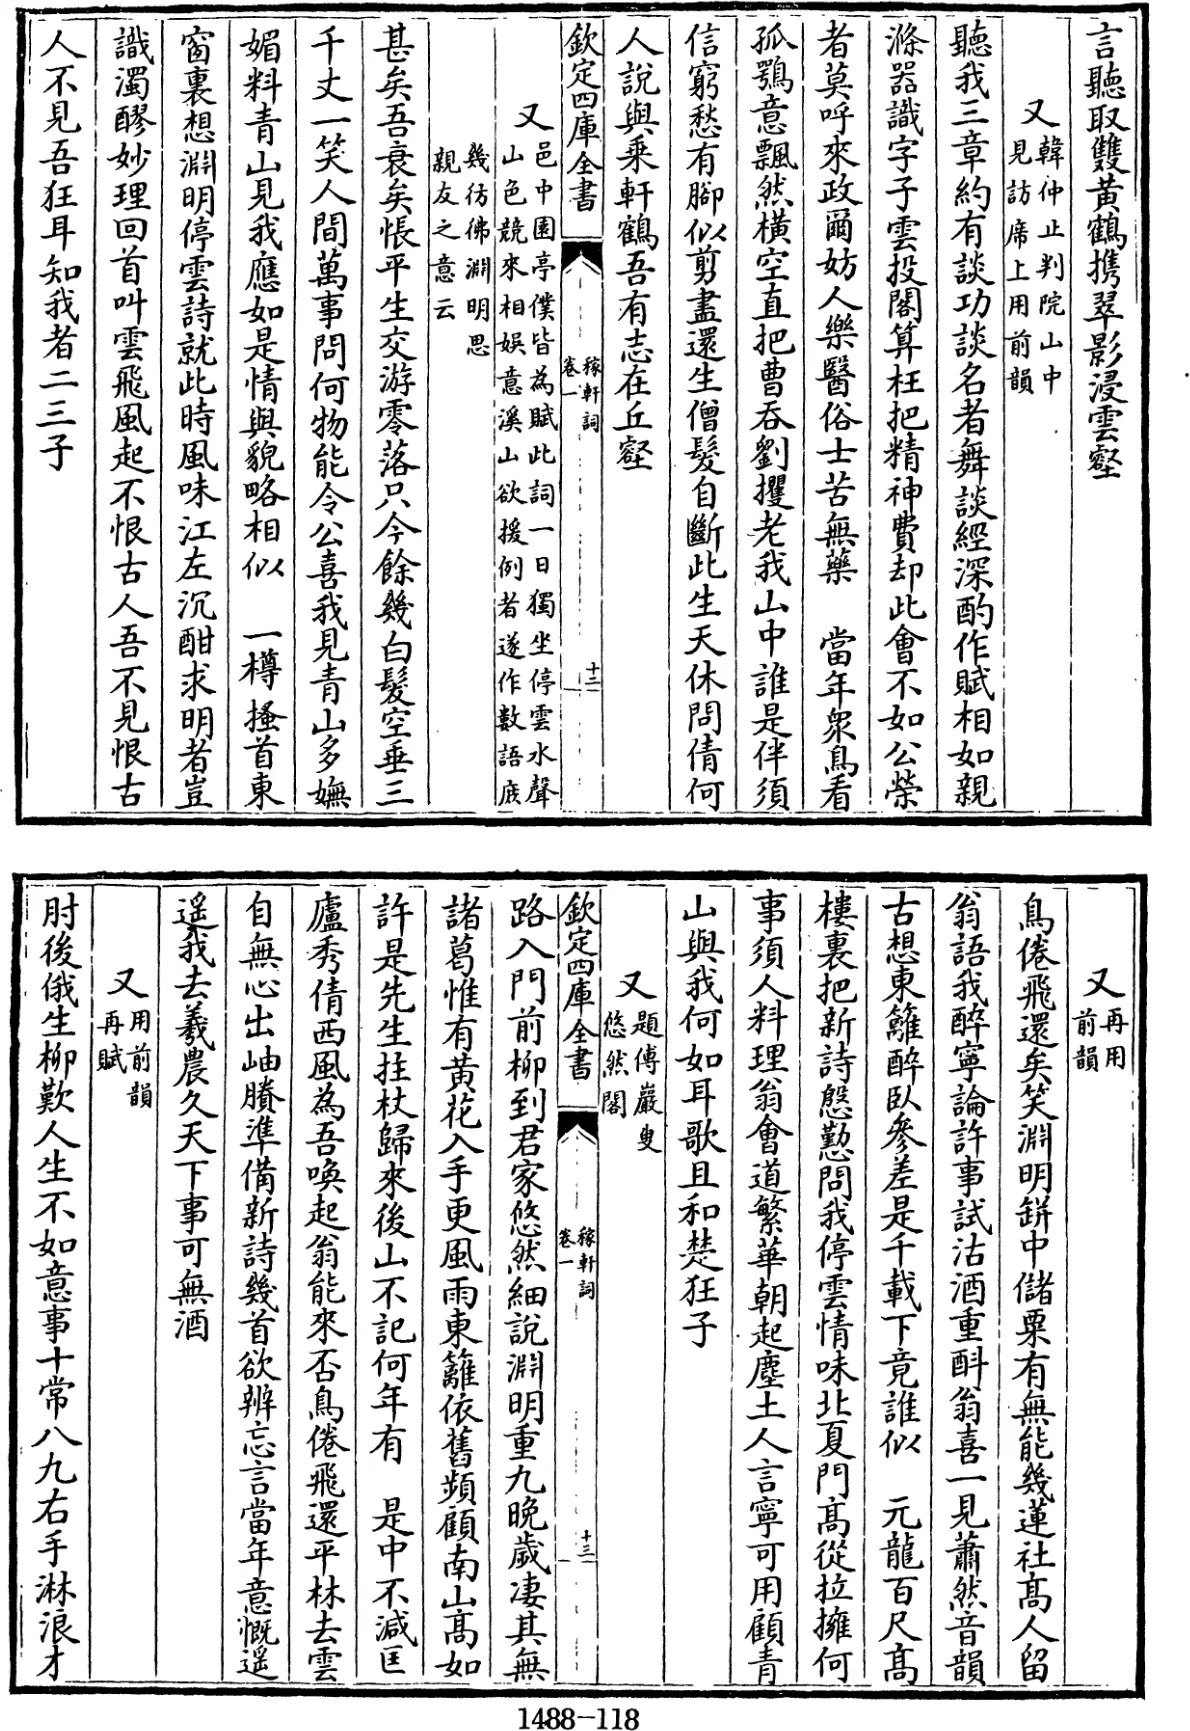 言聽取雙黃鶴携翠影浸雲壑
又韓仲止判院山中
見訪席上用前韻
聽我三章約有談功談名者舞談經深酌作賦相如親
滌器識字子雲投閣算枉把精神費却此會不如公榮
者莫呼來政爾妨人樂醫俗士苦無藥　當年衆鳥看
孤鶚意飄然横空直把曹吞劉攫老我山中誰是伴須
信窮愁有脚似剪盡還生僧髮自斷此生天休問倩何
人說與乘軒鶴吾有志在丘壑
欽定四庫全書
稼軒詞
卷一
十二
又邑中園亭僕皆為賦此詞一日獨坐停雲水聲
山色競來相娱意溪山欲援例者遂作數語庻
幾彷彿淵明思
親友之意云
甚矣吾衰矣悵平生交游零落只今餘幾白髮空垂三
千丈一笑人間萬事問何物能令公喜我見青山多嫵
媚料青山見我應如是情與貌略相似　一樽搔首東
窗裏想淵明停雲詩就此時風味江左沉酣求明者豈
識濁醪妙理回首叫雲飛風起不恨古人吾不見恨古
人不見吾狂耳知我者二三子
又再用
前韻
鳥倦飛還矣笑淵明缾中儲粟有無能幾蓮社高人留
翁語我醉寧論許事試沽酒重斟翁喜一見蕭然音韻
古想東籬醉臥參差是千載下竟誰似　元龍百尺高
樓裏把新詩慇懃問我停雲情味北夏門高從拉攤何
事須人料理翁會道繁華朝起塵土人言寧可用顧青
山與我何如耳歌且和楚狂子
又題傅巖叟
悠然閣
欽定四庫全書
稼軒詞
卷一
十三
路入門前柳到君家悠然細說淵明重九晚歲凄其無
諸葛惟有黄花入手更風雨東籬依舊頻顧南山高如
許是先生拄杖歸來後山不記何年有　是中不減匡
廬秀倩西風為吾喚起翁能來否鳥倦飛還平林去雲
自無心出岫賸準備新詩幾首欲辨忘言當年意慨遥
遥我去羲農久天下事可無酒
又用前韻
再賦
肘後俄生柳歎人生不如意事十常八九右手淋浪才
1488-118